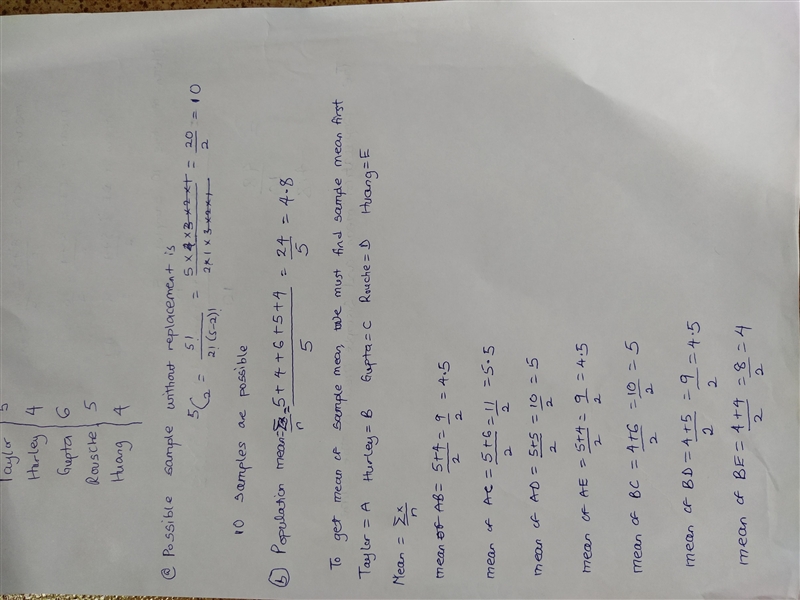 Taylor 5
Hurley 4
Gupta 6
Rousche 5
Huang 4
ⓐ Possible sample without replacement is
5C2 = 5! / 2!(5-2)! = 5×4×3×2×1 / 2×1×3×2×1 = 20/2 = 10
10 samples are possible
ⓑ Population mean = Σx/n = 5+4+6+5+4 / 5 = 24/5 = 4.8
To get mean of sample mean, we must find sample mean first
Taylor = A Hurley = B Gupta = C Rouche = D Huang = E
Mean = Σx/n
mean of AB = 5+4/2 = 9/2 = 4.5
mean of AC = 5+6/2 = 11/2 = 5.5
mean of AD = 5+5/2 = 10/2 = 5
mean of AE = 5+4/2 = 9/2 = 4.5
mean of BC = 4+6/2 = 10/2 = 5
mean of BD = 4+5/2 = 9/2 = 4.5
mean of BE = 4+4/2 = 8/2 = 4